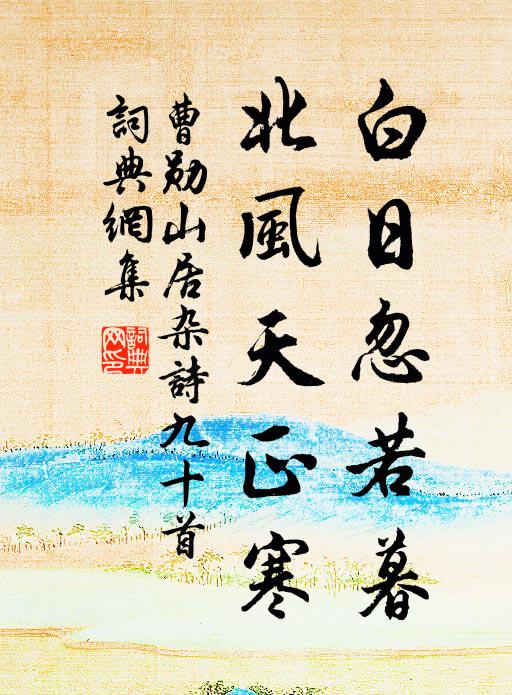 白日忽若暮
北風天正寒
曹勛山居杂詩九十首
詞典網集
詞典
网印